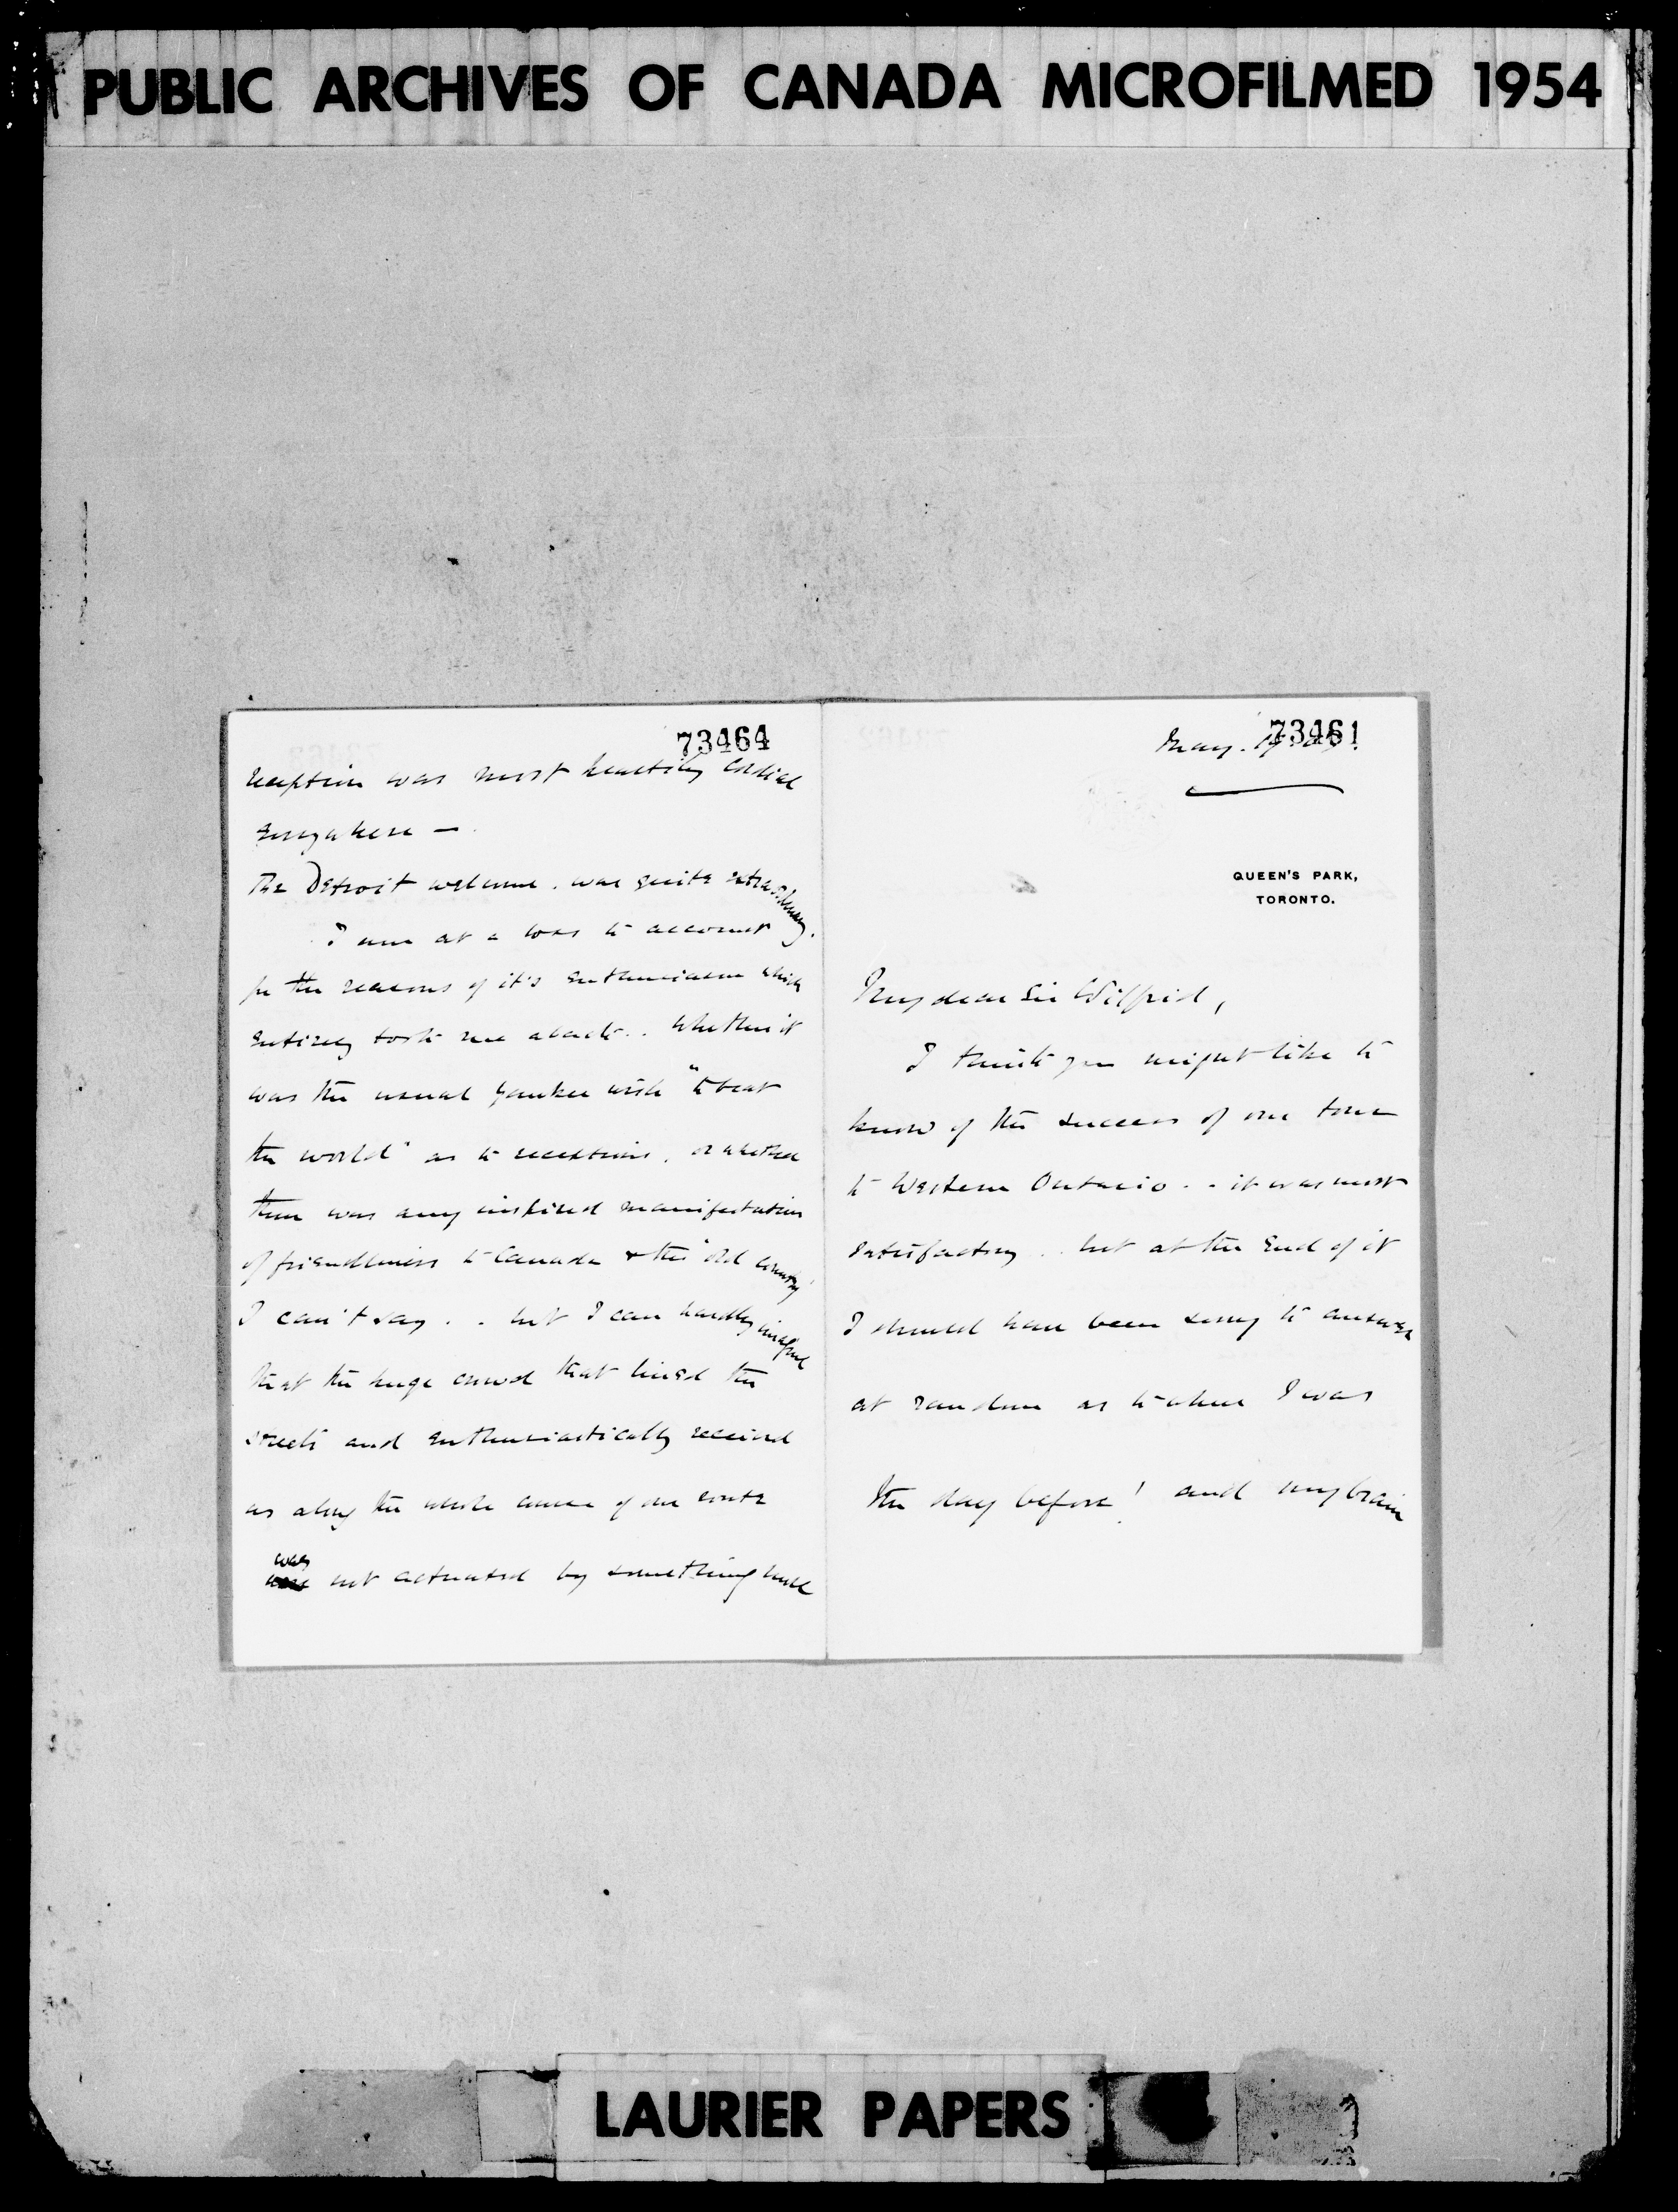 PUBLIC ARCHIVES OF CANADA MICROFILMED 1954
73464
reception was most heartily cordial
everywhere —
The Detroit welcome. was quite extraordinary.
I am at a loss to account
for the reasons of it's enthusiasm which
entirely took me aback.. Whether it
was the usual Yankee wish "to beat
the world" as to receptions. or whether
there was any inspired manifestation
of friendliness to Canada & the "old country"
I can't say . . but I can hardly imagine
that the huge crowd that lined the
streets and enthusiastically received
us along the whole course of our route
was not actuated by something more
73461
May.
QUEEN'S PARK,
TORONTO.
My dear Sir Wilfrid,
I think you might like to
know of the success of our tour
to Western Ontario . . it was most
satisfactory . . but at the end of it
I should have been sorry to answer
at random as to where I was
the day before! and my brain
LAURIER PAPERS